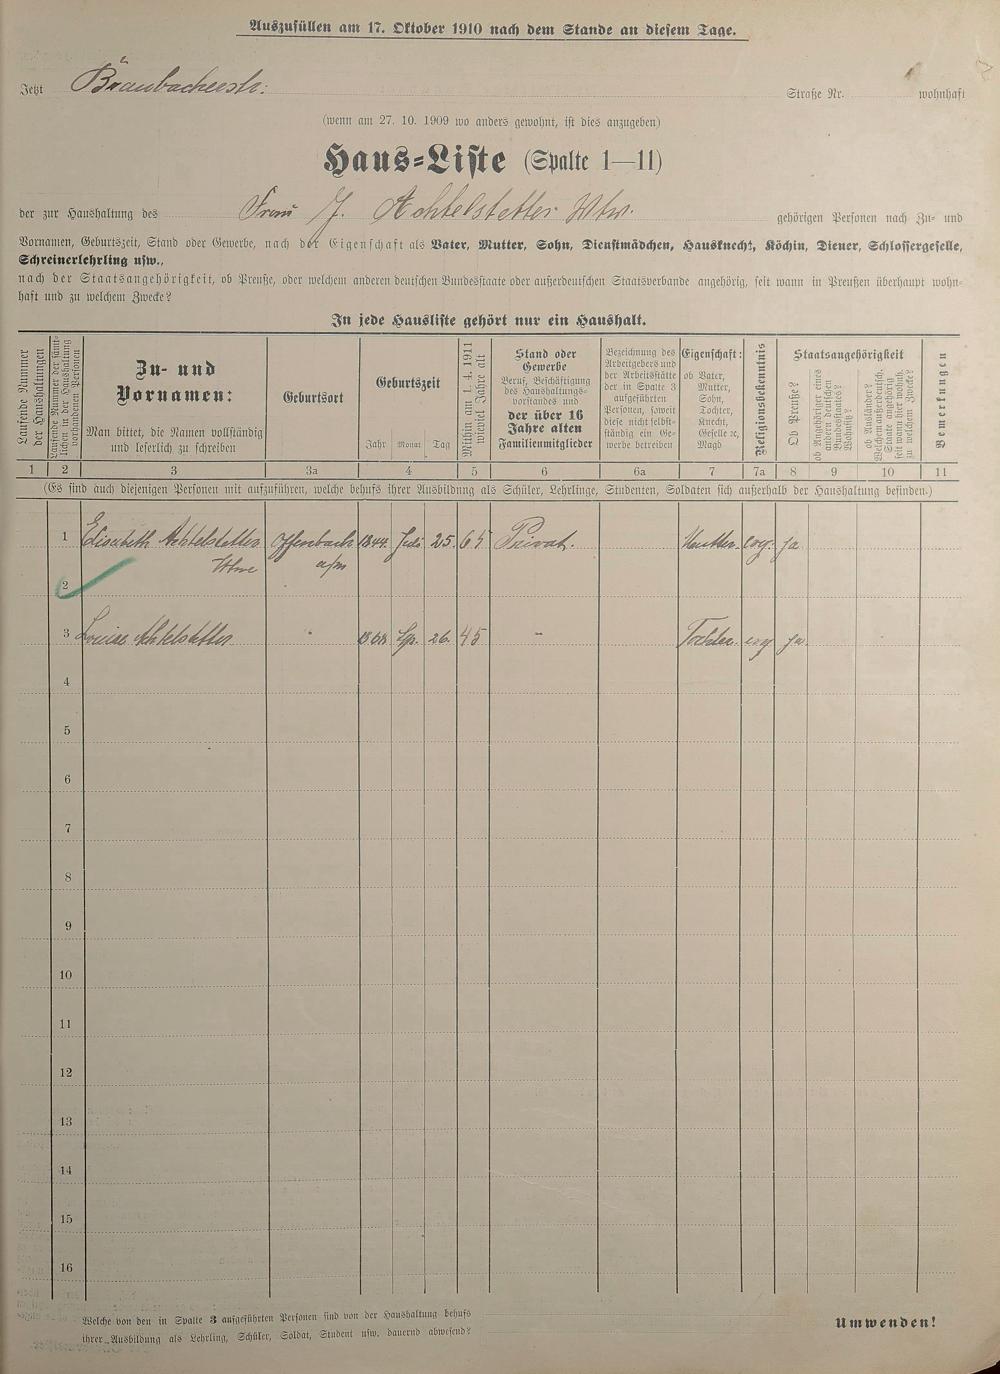 Auszufüllen am 17. Oktober 1910 nach dem Stande an diesem Tage.
Jetzt Braubacherstr. Straße Nr. wohnhaft
(wenn am 27. 10. 1909 wo anders gewohnt, ist dies anzugeben)
Haus-Liste (Spalte 1—11)
der zur Haushaltung des Frau J. Achtelstetter Wtw. gehörigen Personen nach Zu- und
Vornamen, Geburtszeit, Stand oder Gewerbe, nach der Eigenschaft als Vater, Mutter, Sohn, Dienstmädchen, Hausknecht, Köchin, Diener, Schlossergeselle,
Schreinerlehrling usw.,
nach der Staatsangehörigkeit, ob Preuße, oder welchem anderen deutschen Bundesstaate oder außerdeutschen Staatsverbande angehörig, seit wann in Preußen überhaupt wohn-
haft und zu welchem Zwecke?
In jede Hausliste gehört nur ein Haushalt.
Laufende Nummer
der Haushaltungen
Laufende Nummer der sämt-
lichen in der Haushaltung
vorhandenen Personen
Zu- und
Vornamen:
Man bittet, die Namen vollständig
und leserlich zu schreiben
Geburtsort
Geburtszeit
Jahr Monat Tag
Mithin am 1. 4. 1911
wieviel Jahre alt
Stand oder
Gewerbe
Beruf, Beschäftigung
des Haushaltungs-
vorstandes und
der über 16
Jahre alten
Familienmitglieder
Bezeichnung des
Arbeitgebers und
der Arbeitsstätte
der in Spalte 3
aufgeführten
Personen, soweit
diese nicht selbst-
ständig ein Ge-
werbe betreiben
Eigenschaft:
ob Vater,
Mutter,
Sohn,
Tochter,
Knecht,
Geselle ꝛc,
Magd
Religionsbekenntnis
Staatsangehörigkeit
Ob Preuße?
ob Angehöriger eines
andern deutschen
Bundesstaates?
Wohnsitz?
ob Ausländer?
Welchem außerdeutsch.
Staate angehörig
seit wann hier wohnh.
zu welchem Zwecke?
Bemerkungen
1 2 3 3a 4 5 6 6a 7 7a 8 9 10 11
(Es sind auch diejenigen Personen mit aufzuführen, welche behufs ihrer Ausbildung als Schüler, Lehrlinge, Studenten, Soldaten sich außerhalb der Haushaltung befinden.)
1 Elisabeth Achtelstetter Offenbach 1844. Juli 25. 65 Privat. Mutter. evg. ja
Wtwe a/m
2
3 Louise Achtelstetter " 26. 45 " Tochter evg ja.
4
5
6
7
8
9
10
11
12
13
14
15
16
Welche von den in Spalte 3 aufgeführten Personen sind von der Haushaltung behufs
ihrer Ausbildung als Lehrling, Schüler, Soldat, Student usw. dauernd abwesend?
Umwenden!